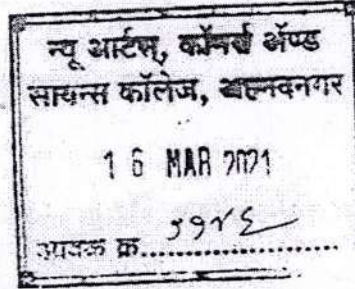 न्यू आर्टस्, कॉमर्स अ‍ॅण्ड
सायन्स कॉलेज, अहमदनगर
1 6 MAR 2021
आवक क्र. ५१४६